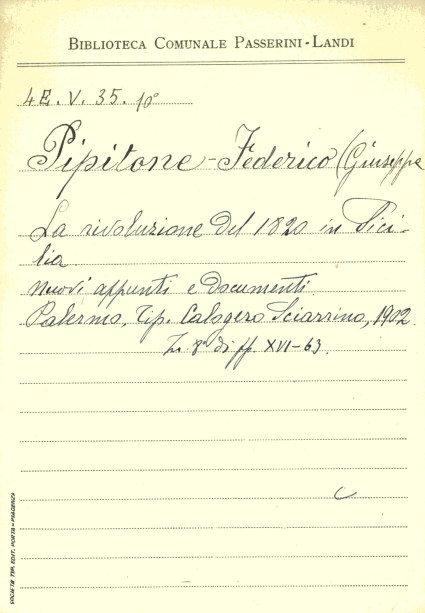 BIBLIOTECA COMUNALE PASSERINI-LANDI
4E. V. 35. 10°
Pipitone-Federico (Giuseppe
La rivoluzione del 1820 in Sici-
lia
nuovi appunti e documenti.
Palermo, Tip. Calogero Sciarrino, 1902.
di pp. XVI-63.
SOCIETÀ TIP. EDIT. PORTA - PIACENZA